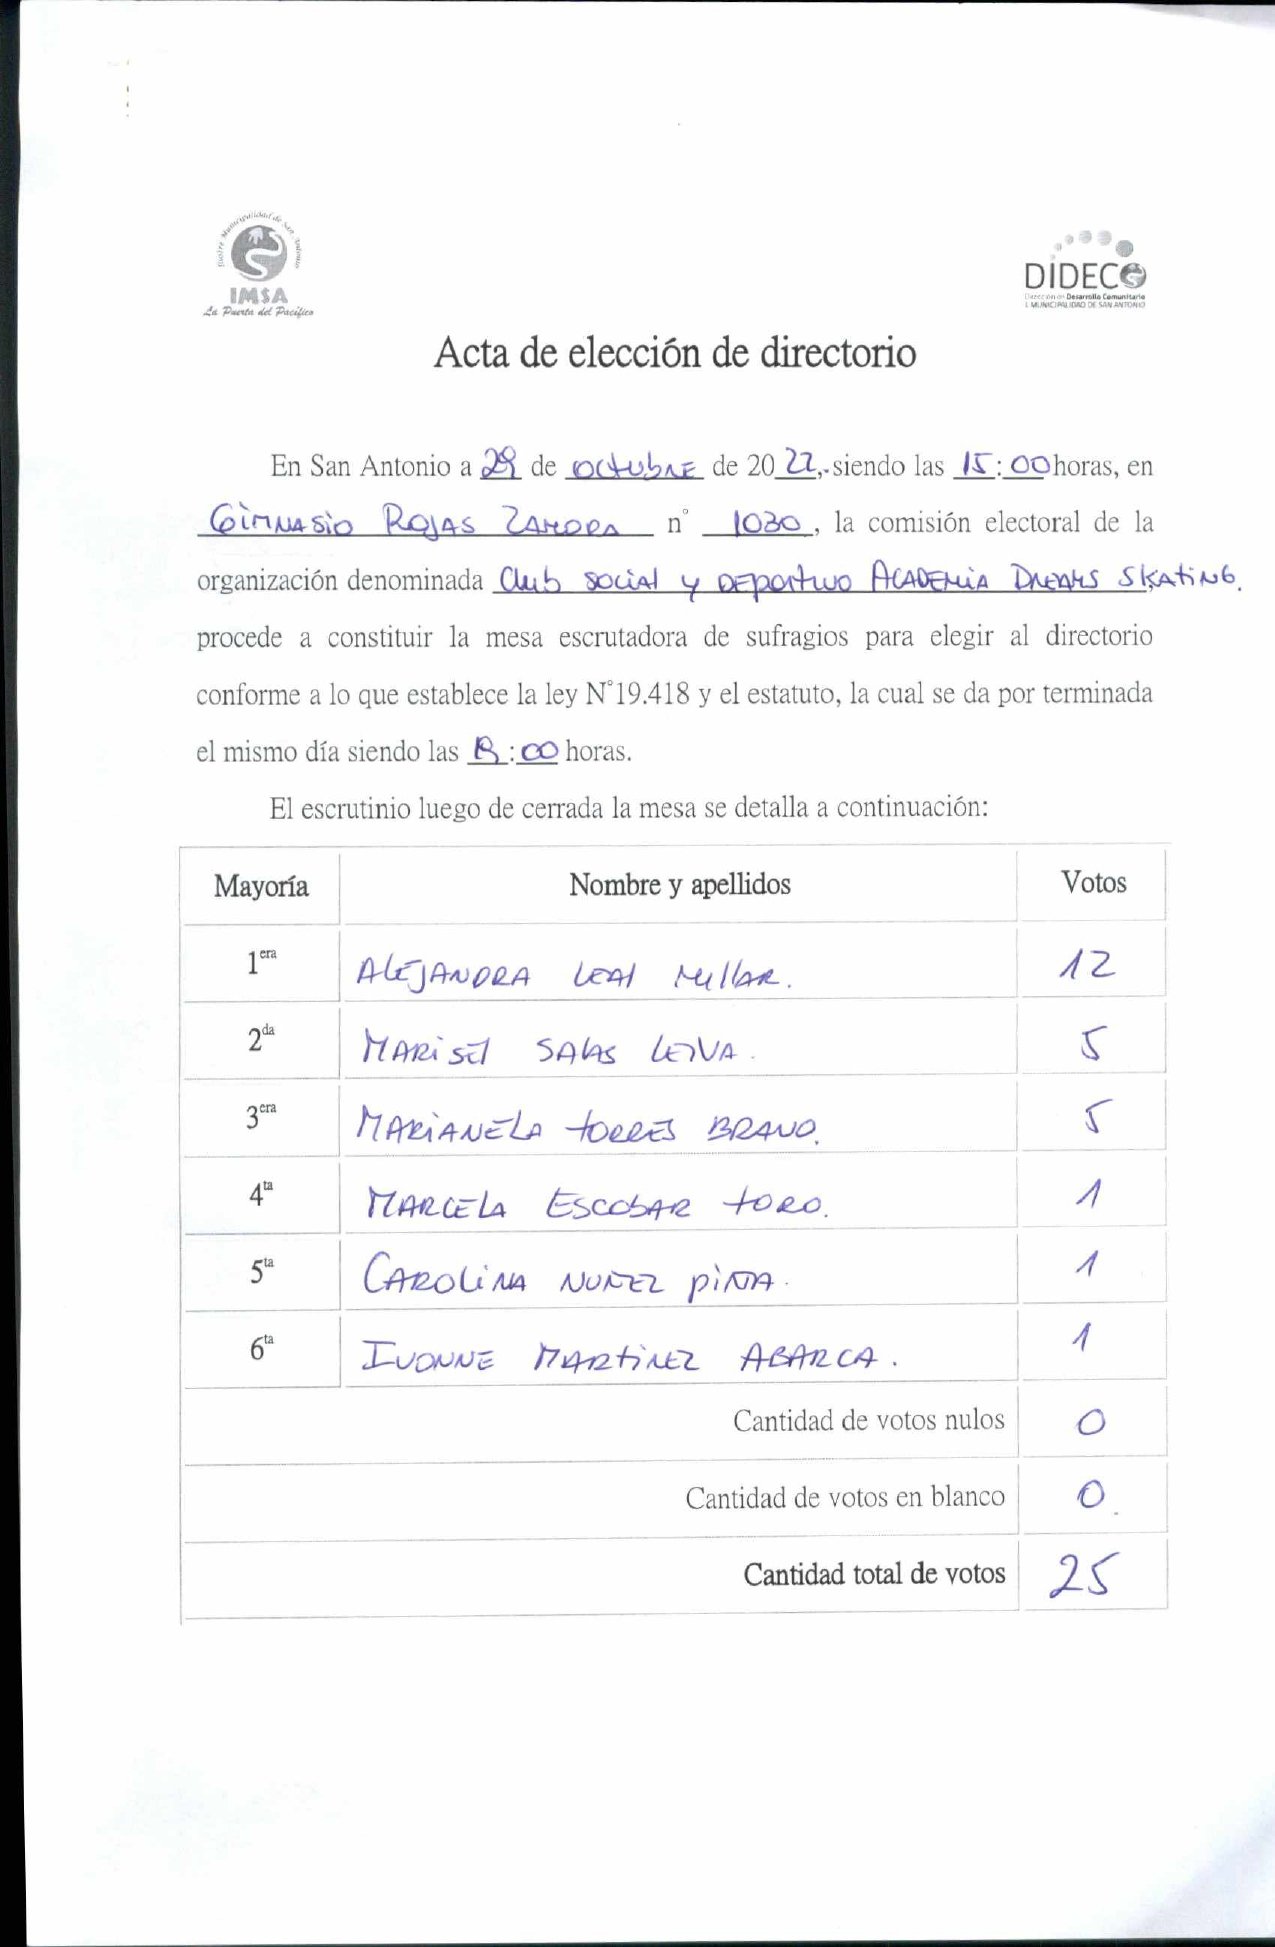 Ilustre Municipalidad de San Antonio
IMSA
La Puerta del Pacífico
DIDECO
Dirección de Desarrollo Comunitario
I. MUNICIPALIDAD DE SAN ANTONIO
Acta de elección de directorio
En San Antonio a 29 de octubre de 2022,. siendo las 15:00 horas, en
Gimnasio Rojas Zamora n° 1030, la comisión electoral de la
organización denominada Club social y deportivo Academia Dreams Skating.
procede a constituir la mesa escrutadora de sufragios para elegir al directorio
conforme a lo que establece la ley N°19.418 y el estatuto, la cual se da por terminada
el mismo día siendo las :00 horas.
El escrutinio luego de cerrada la mesa se detalla a continuación:
Mayoría Nombre y apellidos Votos
1era Alejandra Leal Millar. 12
2da Marisel Salas Leiva. 5
3era Marianela Torres Bravo. 5
4ta Marcela Escobar Toro. 1
5ta Carolina Nuñez Pinta. 1
6ta Ivonne Martinez Abarca. 1
Cantidad de votos nulos 0
Cantidad de votos en blanco 0.
Cantidad total de votos 25